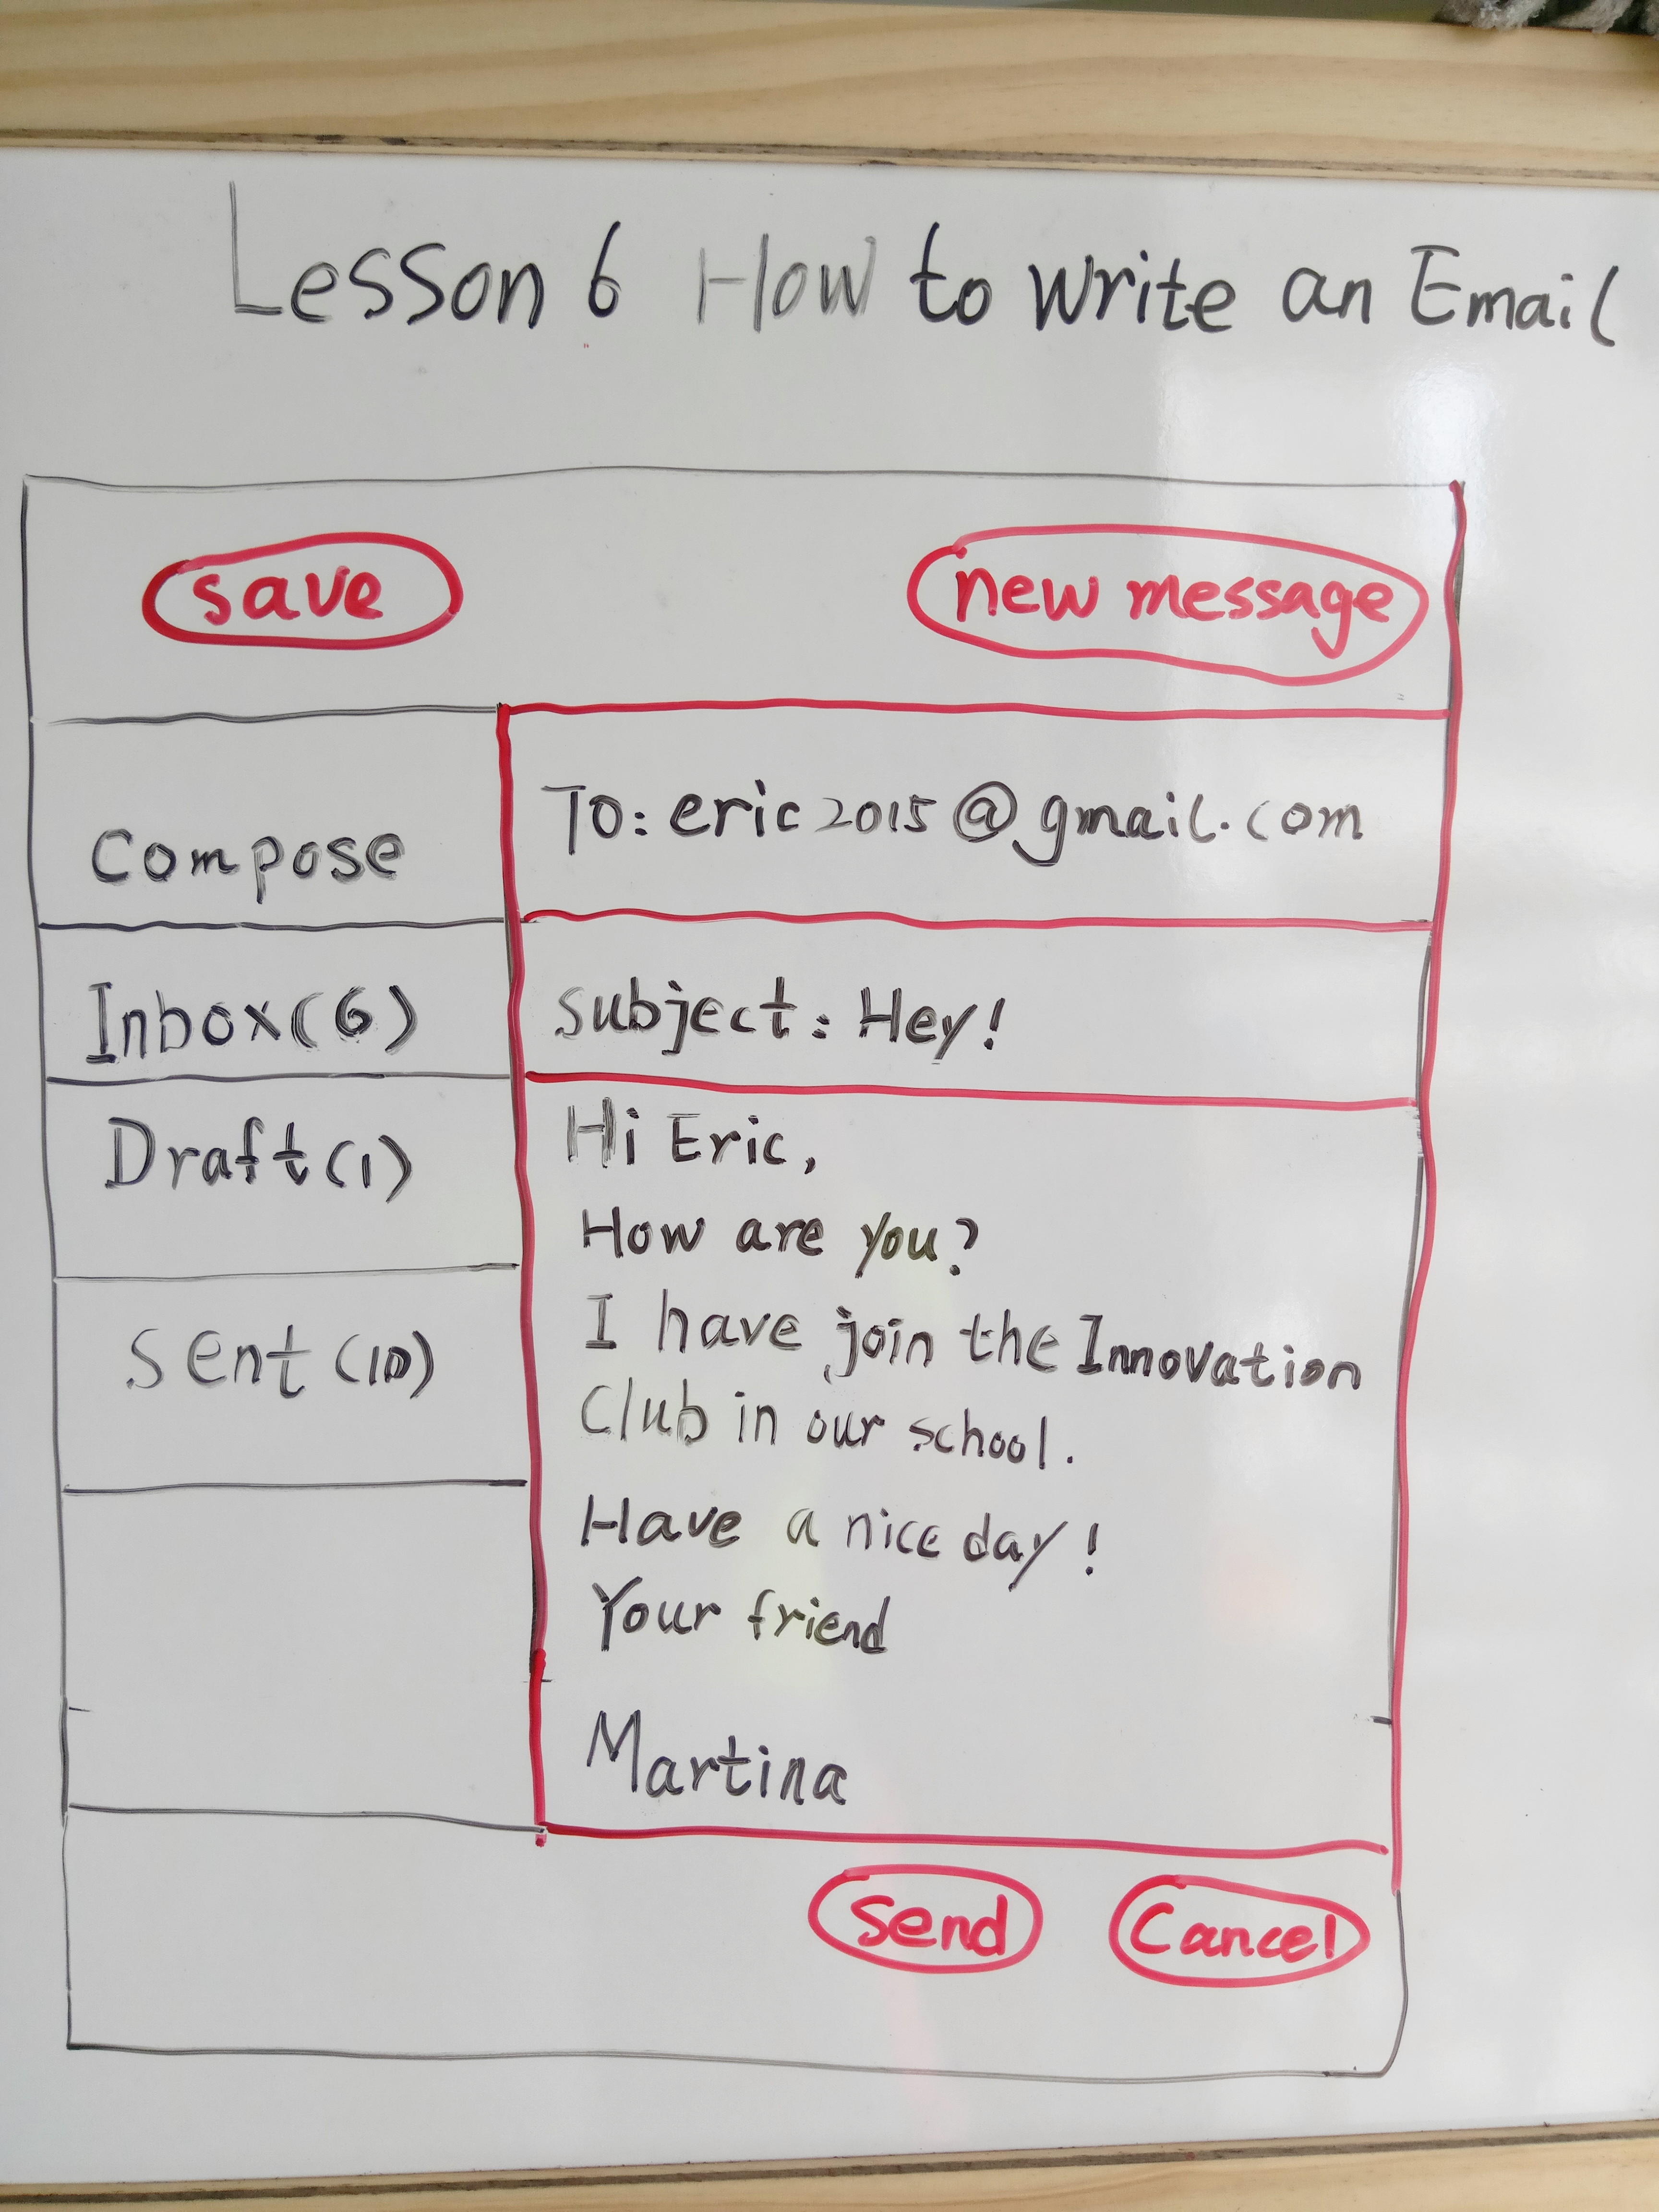 Lesson 6 How to write an Email
save
new message
Compose
To: eric2015@gmail.com
Inbox(6)
subject: Hey!
Draft(1)
Hi Eric,
How are you?
I have join the Innovation
Club in our school.
Sent(10)
Have a nice day!
Your friend
Martina
Send
Cancel